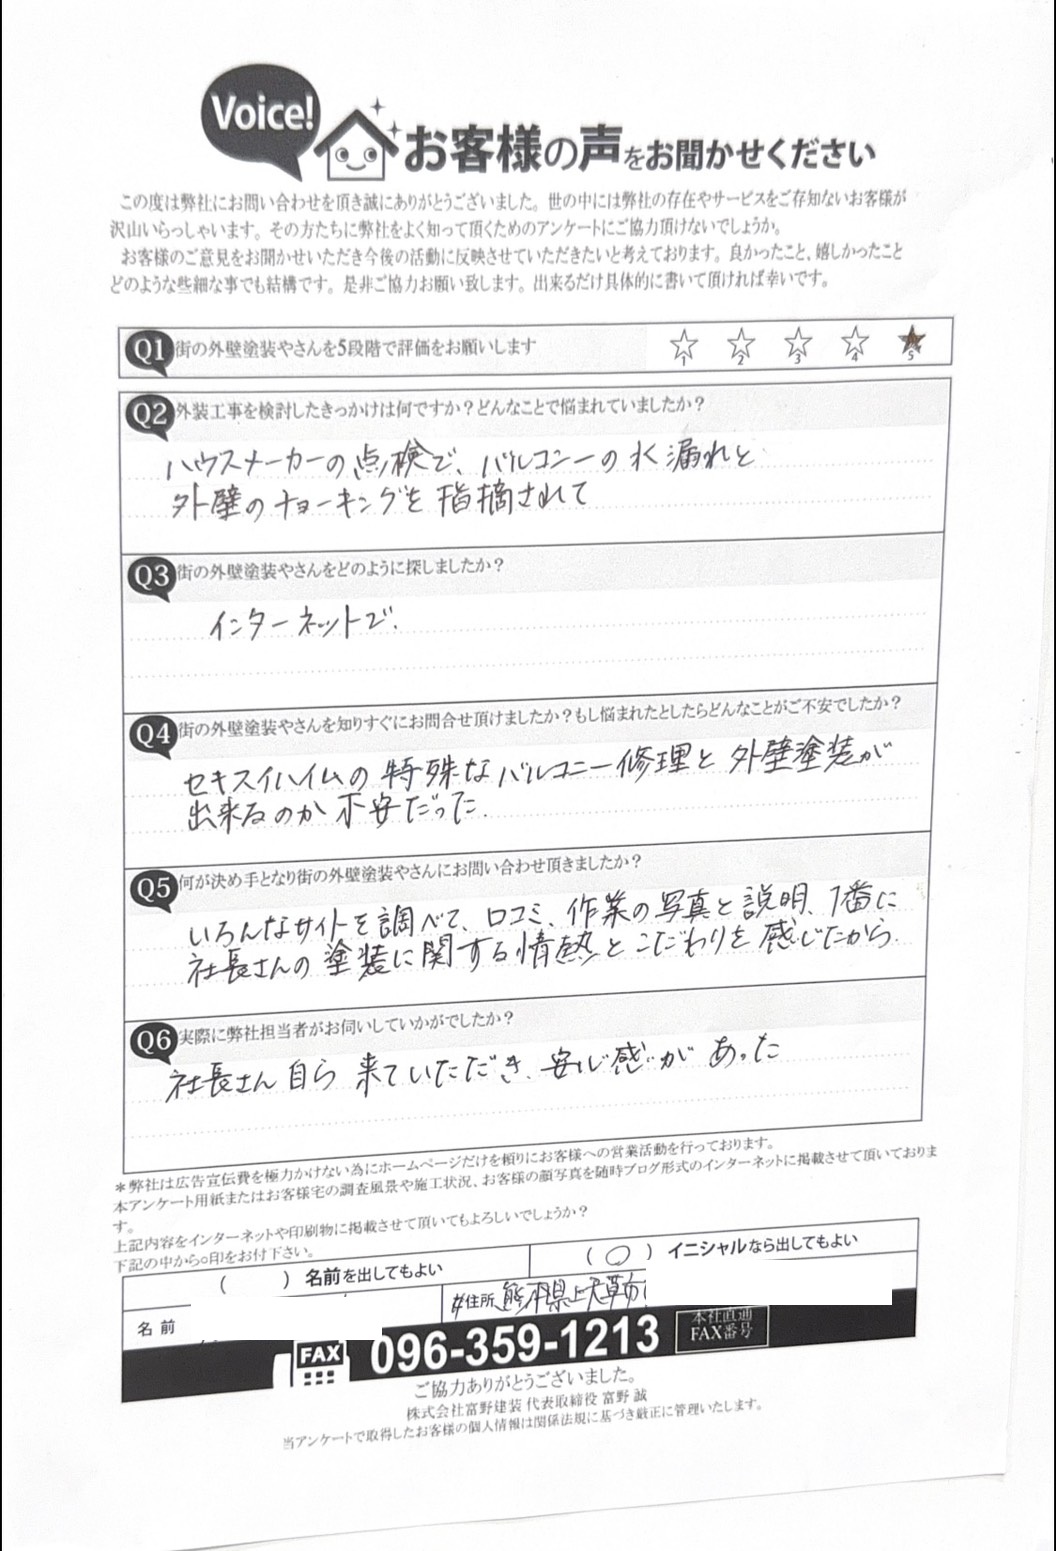 Voice!
お客様の声をお聞かせください
この度は弊社にお問い合わせを頂き誠にありがとうございました。世の中には弊社の存在やサービスをご存知ないお客様が
沢山いらっしゃいます。その方たちに弊社をよく知って頂くためのアンケートにご協力頂けないでしょうか。
お客様のご意見をお聞かせいただき今後の活動に反映させていただきたいと考えております。良かったこと、嬉しかったこと
どのような些細な事でも結構です。是非ご協力お願い致します。出来るだけ具体的に書いて頂ければ幸いです。
Q1 街の外壁塗装やさんを5段階で評価をお願いします
1 2 3 4 5
Q2 外装工事を検討したきっかけは何ですか？どんなことで悩まれていましたか？
ハウスメーカーの点検で、バルコニーの水漏れと
外壁のチョーキングを指摘されて
Q3 街の外壁塗装やさんをどのように探しましたか？
インターネットで.
Q4 街の外壁塗装やさんを知りすぐにお問合せ頂けましたか？もし悩まれたとしたらどんなことがご不安でしたか？
セキスイハイムの特殊なバルコニー修理と外壁塗装が
出来るのか不安だった.
Q5 何が決め手となり街の外壁塗装やさんにお問い合わせ頂きましたか？
いろんなサイトを調べて、口コミ、作業の写真と説明、1番に
社長さんの塗装に関する情熱とこだわりを感じたから.
Q6 実際に弊社担当者がお伺いしていかがでしたか？
社長さん自ら来ていただき、安心感があった
＊弊社は広告宣伝費を極力かけない為にホームページだけを頼りにお客様への営業活動を行っております。
本アンケート用紙またはお客様宅の調査風景や施工状況、お客様の顔写真を随時ブログ形式のインターネットに掲載させて頂いておりま
す。
上記内容をインターネットや印刷物に掲載させて頂いてもよろしいでしょうか？
下記の中から○印をお付け下さい。
（　　）名前を出してもよい
（○）イニシャルなら出してもよい
名前
住所 熊本県上天草市
FAX 096-359-1213 本社直通
FAX番号
ご協力ありがとうございました。
株式会社富野建装 代表取締役 富野 誠
当アンケートで取得したお客様の個人情報は関係法規に基づき厳正に管理いたします。